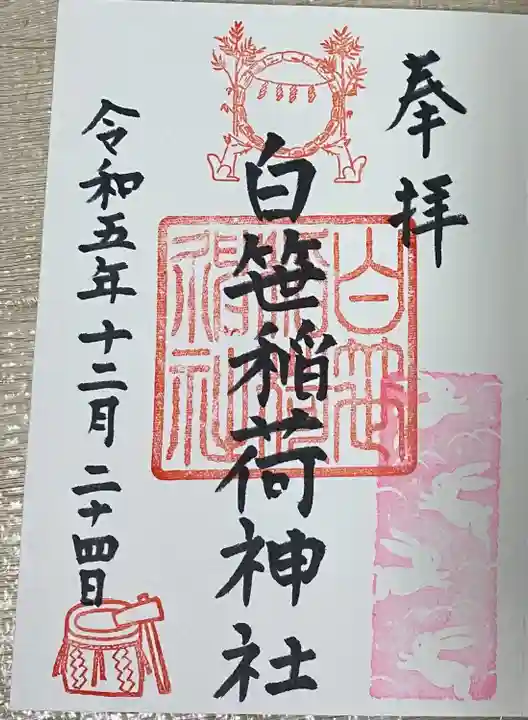 奉拝
白笹稲荷神社
白笹稲荷神社
令和五年十二月二十四日